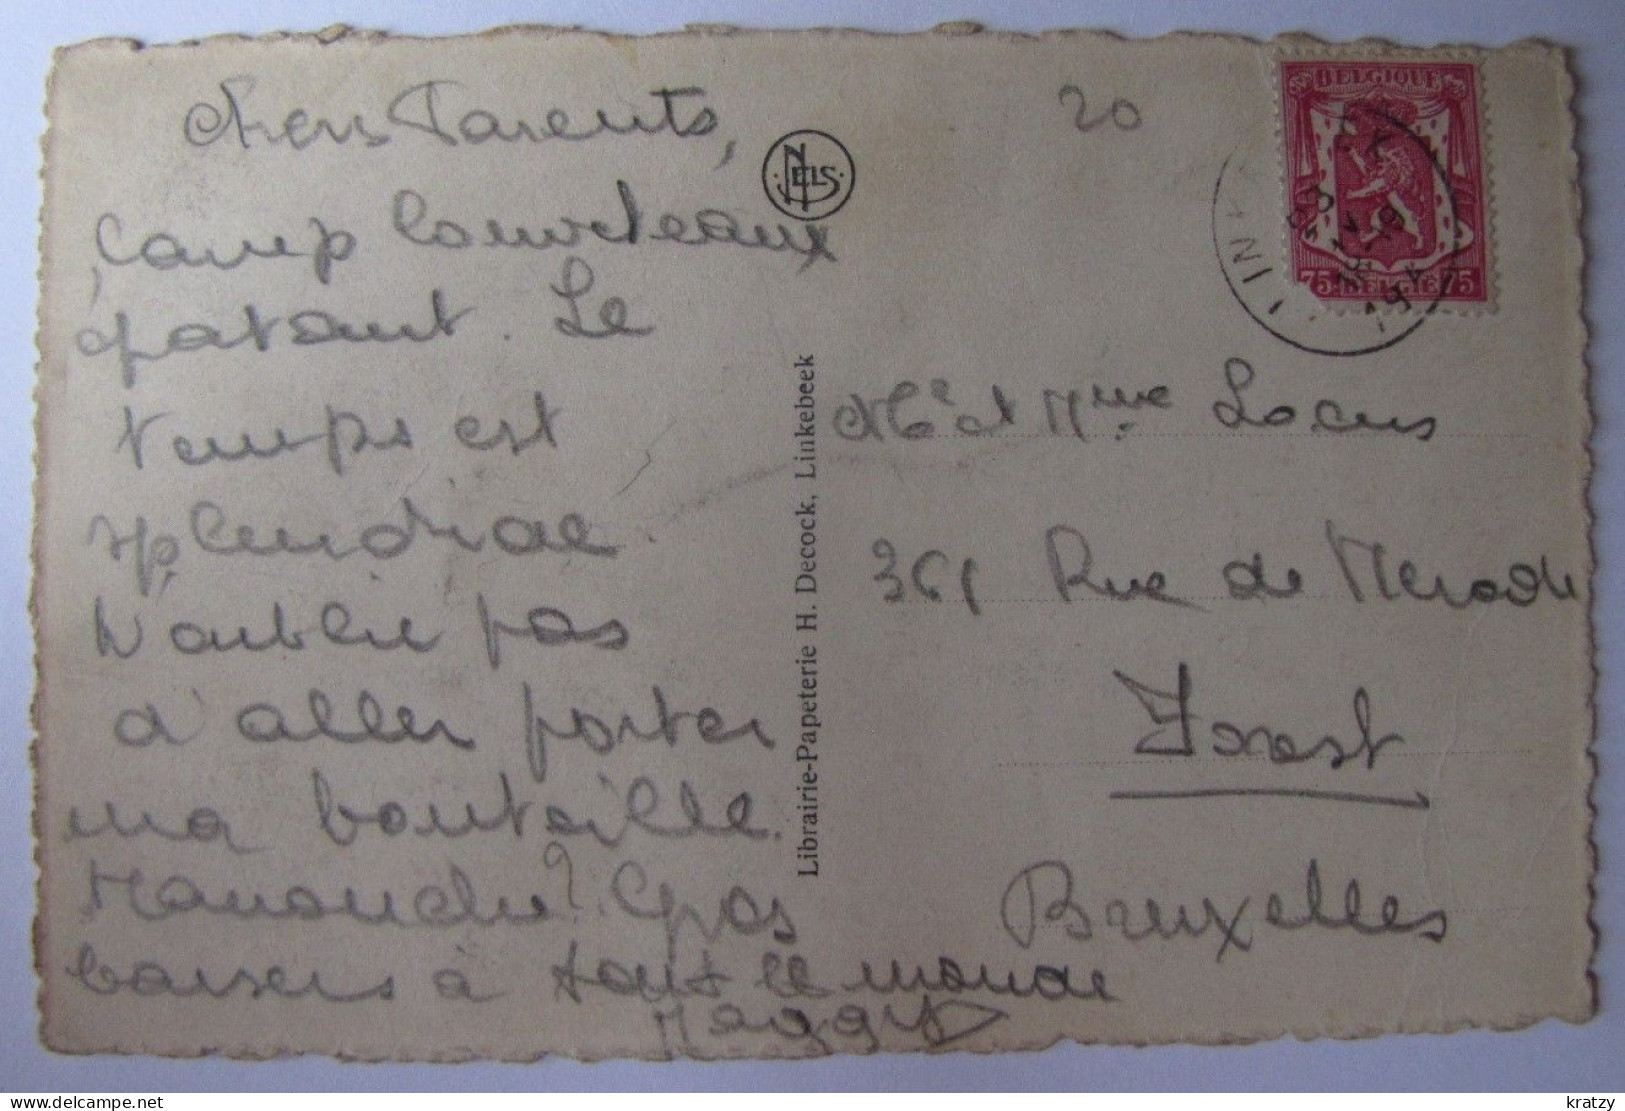 Chers Parents,
Camp louveteaux
épatant. Le
temps est
splendide.
N'oublie pas
d'aller porter
ma bouteille.
Manouche? Gros
baisers à tout le monde
Maggy
NELS
Librairie-Papeterie H. Decock, Linkebeek
20
BELGIQUE
75 BELGIE 75
Mr et Mme Locus
361 Rue de Merode
Forest
Bruxelles
kratzy